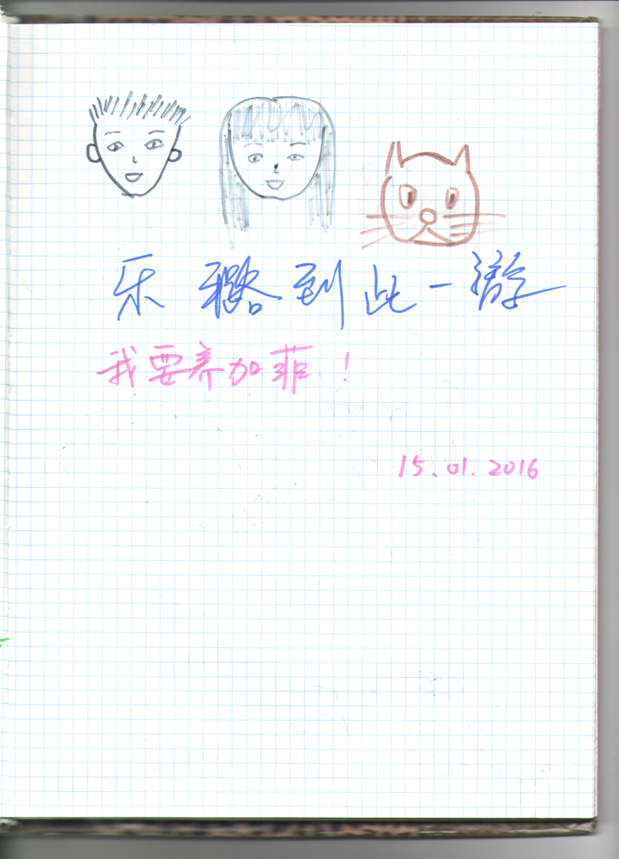 乐 璐到此一游
我要养加菲！
15.01.2016